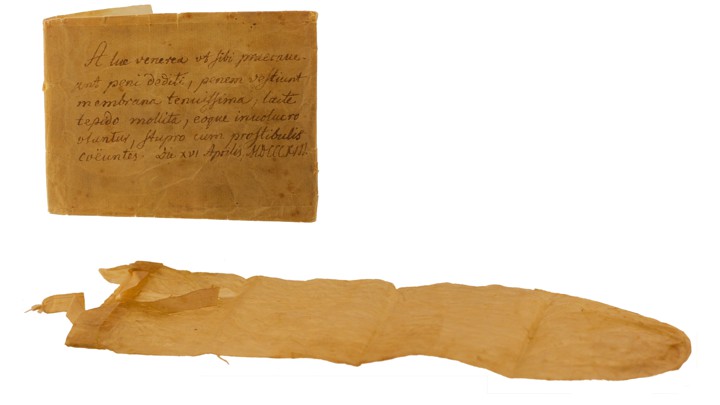 A lue venerea vt sibi praecave-
ant peni dediti, penem vestiunt
membrana tenuissima, lacte
tepido mollita, eoque inuolucro
vtuntur, stupro cum prostibulis
coëuntes. Die XVI Aprilis